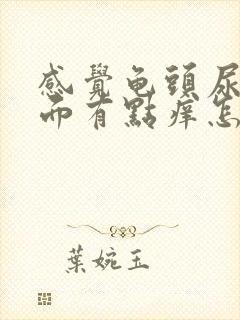 感覺龟頭尿
而有點痒怎
葉婉玉